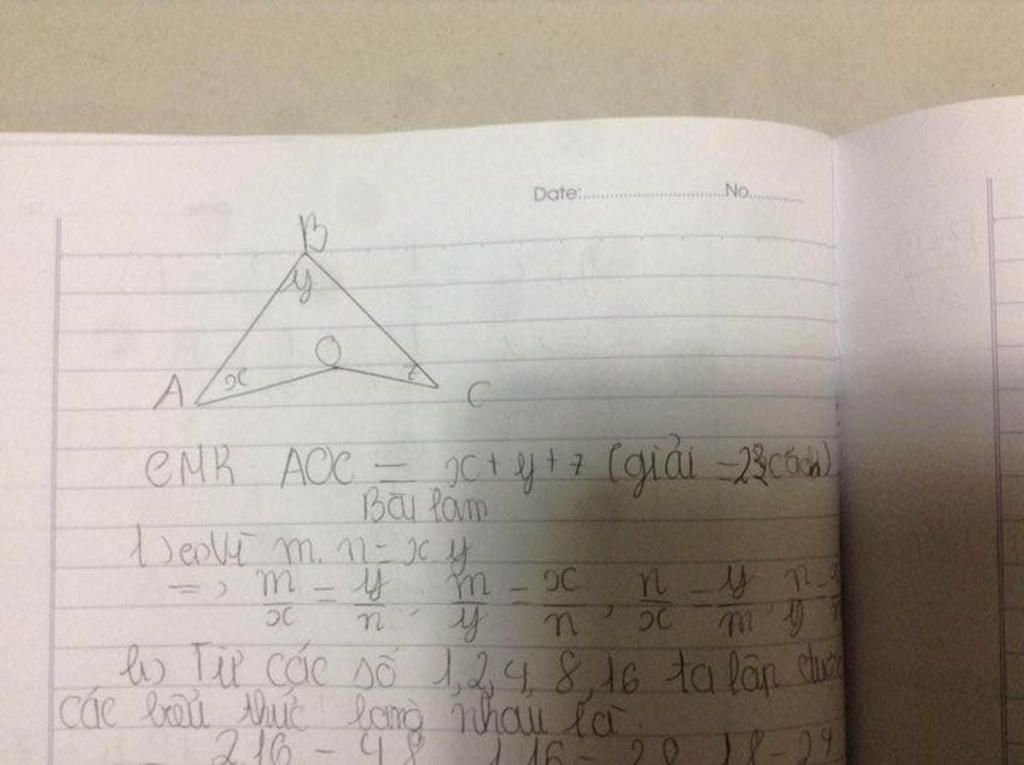 Date:..............................No............
B
y
O
A x z C
CMR AOC = x + y + z (giải = 23 cách)
Bài làm
1) a) Vì m. n = x y
=> m/x = y/n, m/y = x/n, n/x = y/m, n/y
b) Từ các số 1, 2, 4, 8, 16 ta lập được
các biểu thức bằng nhau là
2.16 = 4.8 1.16 = 2.8 1.8 = 2.4